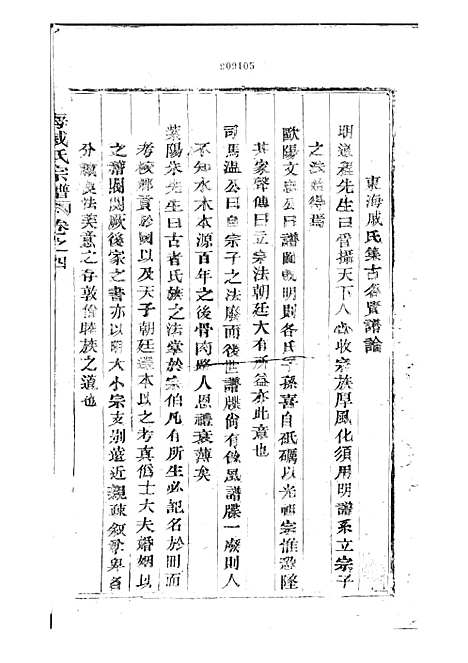 909105
東海戚氏集古名賢譜論
明道程先生曰管攝天下人心收宗族厚風化須用明譜系立宗子
之法始得焉
歐陽文忠公曰譜圖既明則各氏子孫喜自砥礪以光輝宗惟恐隆
其家聲傳曰立宗法朝廷大有所益亦此意也
司馬溫公曰自宗子之法廢而後世譜牒尚有後風譜牒一廢則人
不知水木本源百年之後骨肉路人恩禮衰薄矣
紫陽朱先生曰古者氏族之法掌於宗伯凡有所生必記名於冊而
考校鄉貢於國以及天子朝廷選本以之考真偽士大夫婚姻以
之譜閥閱厥後家之書亦以明大小宗支別遠近親疎敘尊卑名
分穰良法美意之存敦倫睦族之道也
海戚氏宗譜 卷之四